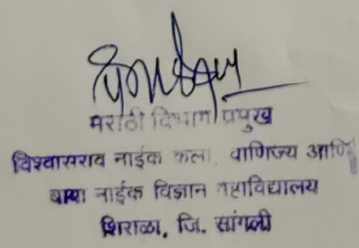 मराठी विभाग प्रमुख
विश्वासराव नाईक कला, वाणिज्य आणि
बाबा नाईक विज्ञान महाविद्यालय
शिराळा, जि. सांगली